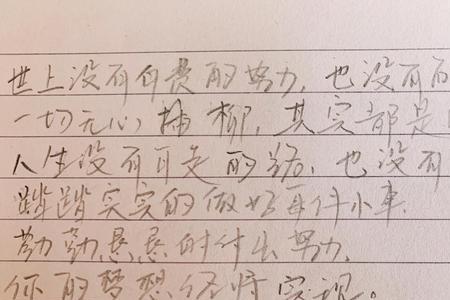 世上没有白费的努力,也没有
一切无心插柳,其实都是
人生没有白走的路,也没有
踏踏实实的做好每件小事,
勤勤恳恳的付出努力,
你的梦想终将实现。